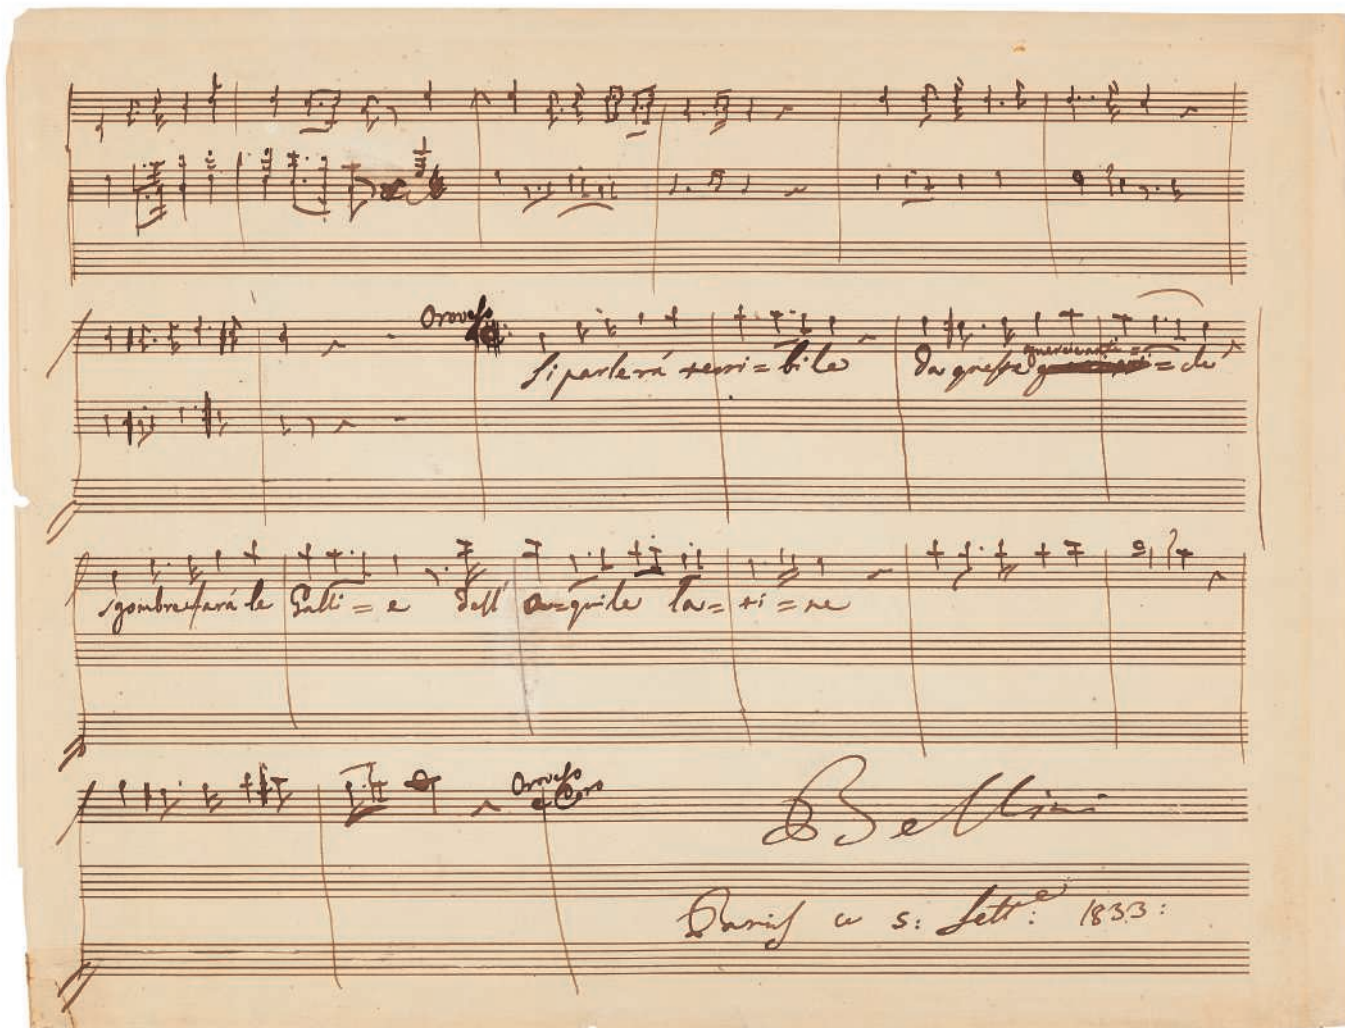 Oroveso
si parlerá terri=bile da queste querci anti==che
sgombre fará le Galli=e dall' a=quile la=ti=ne
Oroveso
e Coro
Bellini
Paris a 5: Sett.e: 1833: